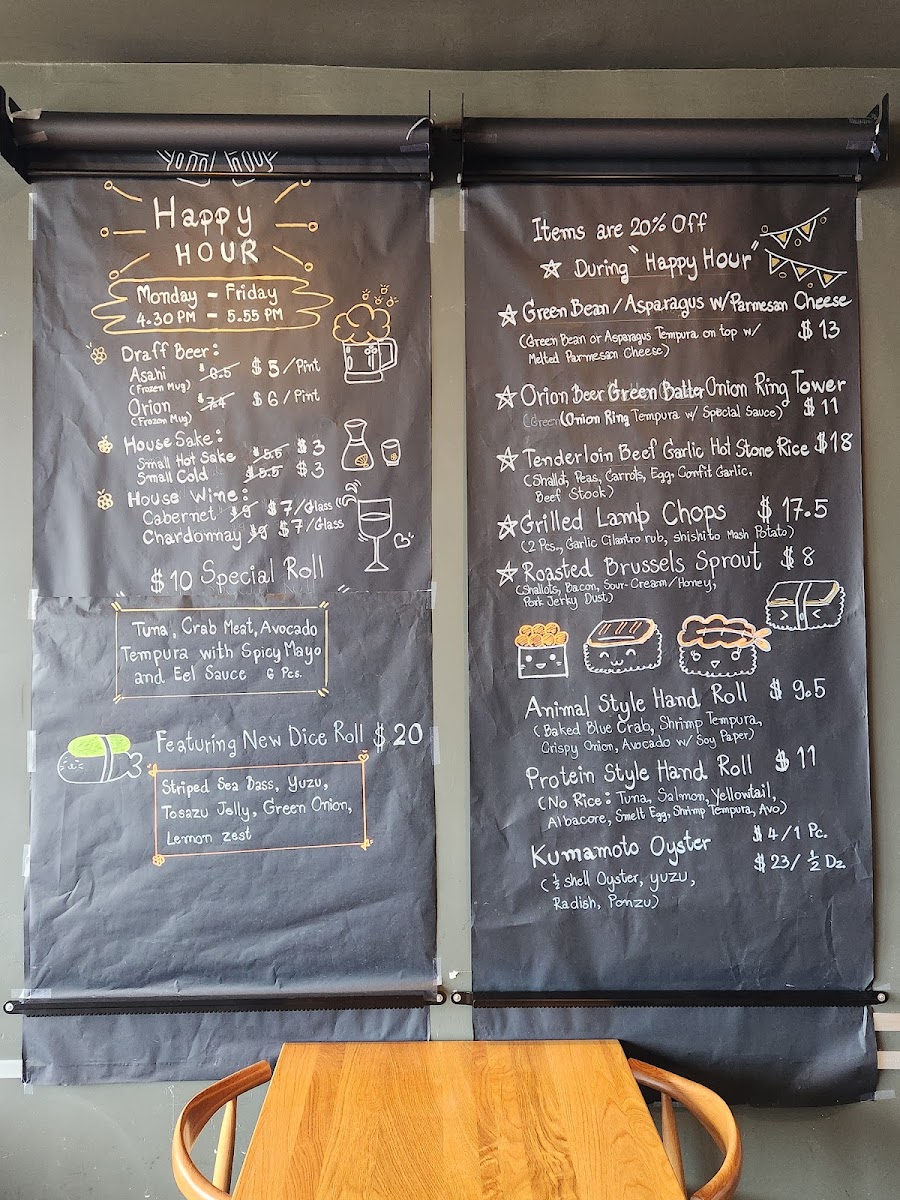 Happy
HOUR
Monday - Friday
4.30 PM - 5.55 PM
Draff Beer:
Asahi $6.5 $5/Pint
(Frozen Mug)
Orion $7.4 $6/Pint
(Frozen Mug)
House Sake:
Small Hot Sake $5.5 $3
Small Cold $5.5 $3
House Wine:
Cabernet $9 $7/Glass
Chardonnay $9 $7/Glass
$10 Special Roll
Tuna, Crab Meat, Avocado
Tempura with Spicy Mayo
and Eel Sauce 6 Pcs.
Featuring New Dice Roll $20
Striped Sea Bass, Yuzu,
Tosazu Jelly, Green Onion,
Lemon zest
Items are 20% Off
☆ During "Happy Hour"
☆ Green Bean / Asparagus w/ Parmesan Cheese
(Green Bean or Asparagus Tempura on top w/ $13
Melted Parmesan Cheese)
☆ Orion Beer Green Batter Onion Ring Tower
(Green Onion Ring Tempura w/ Special Sauce) $11
☆ Tenderloin Beef Garlic Hot Stone Rice $18
(Shallot, Peas, Carrots, Egg, Confit Garlic,
Beef Stock)
☆ Grilled Lamb Chops $17.5
(2 Pcs., Garlic Cilantro rub, shishito Mash Potato)
☆ Roasted Brussels Sprout $8
(Shallots, Bacon, Sour-Cream/Honey,
Pork Jerky Dust)
Animal Style Hand Roll $9.5
(Baked Blue Crab, Shrimp Tempura,
Crispy Onion, Avocado w/ Soy Paper)
Protein Style Hand Roll $11
(No Rice: Tuna, Salmon, Yellowtail,
Albacore, Smelt Egg, Shrimp Tempura, Avo)
Kumamoto Oyster $4/1 Pc.
$23/ ½ Dz
(½ shell Oyster, yuzu,
Radish, Ponzu)